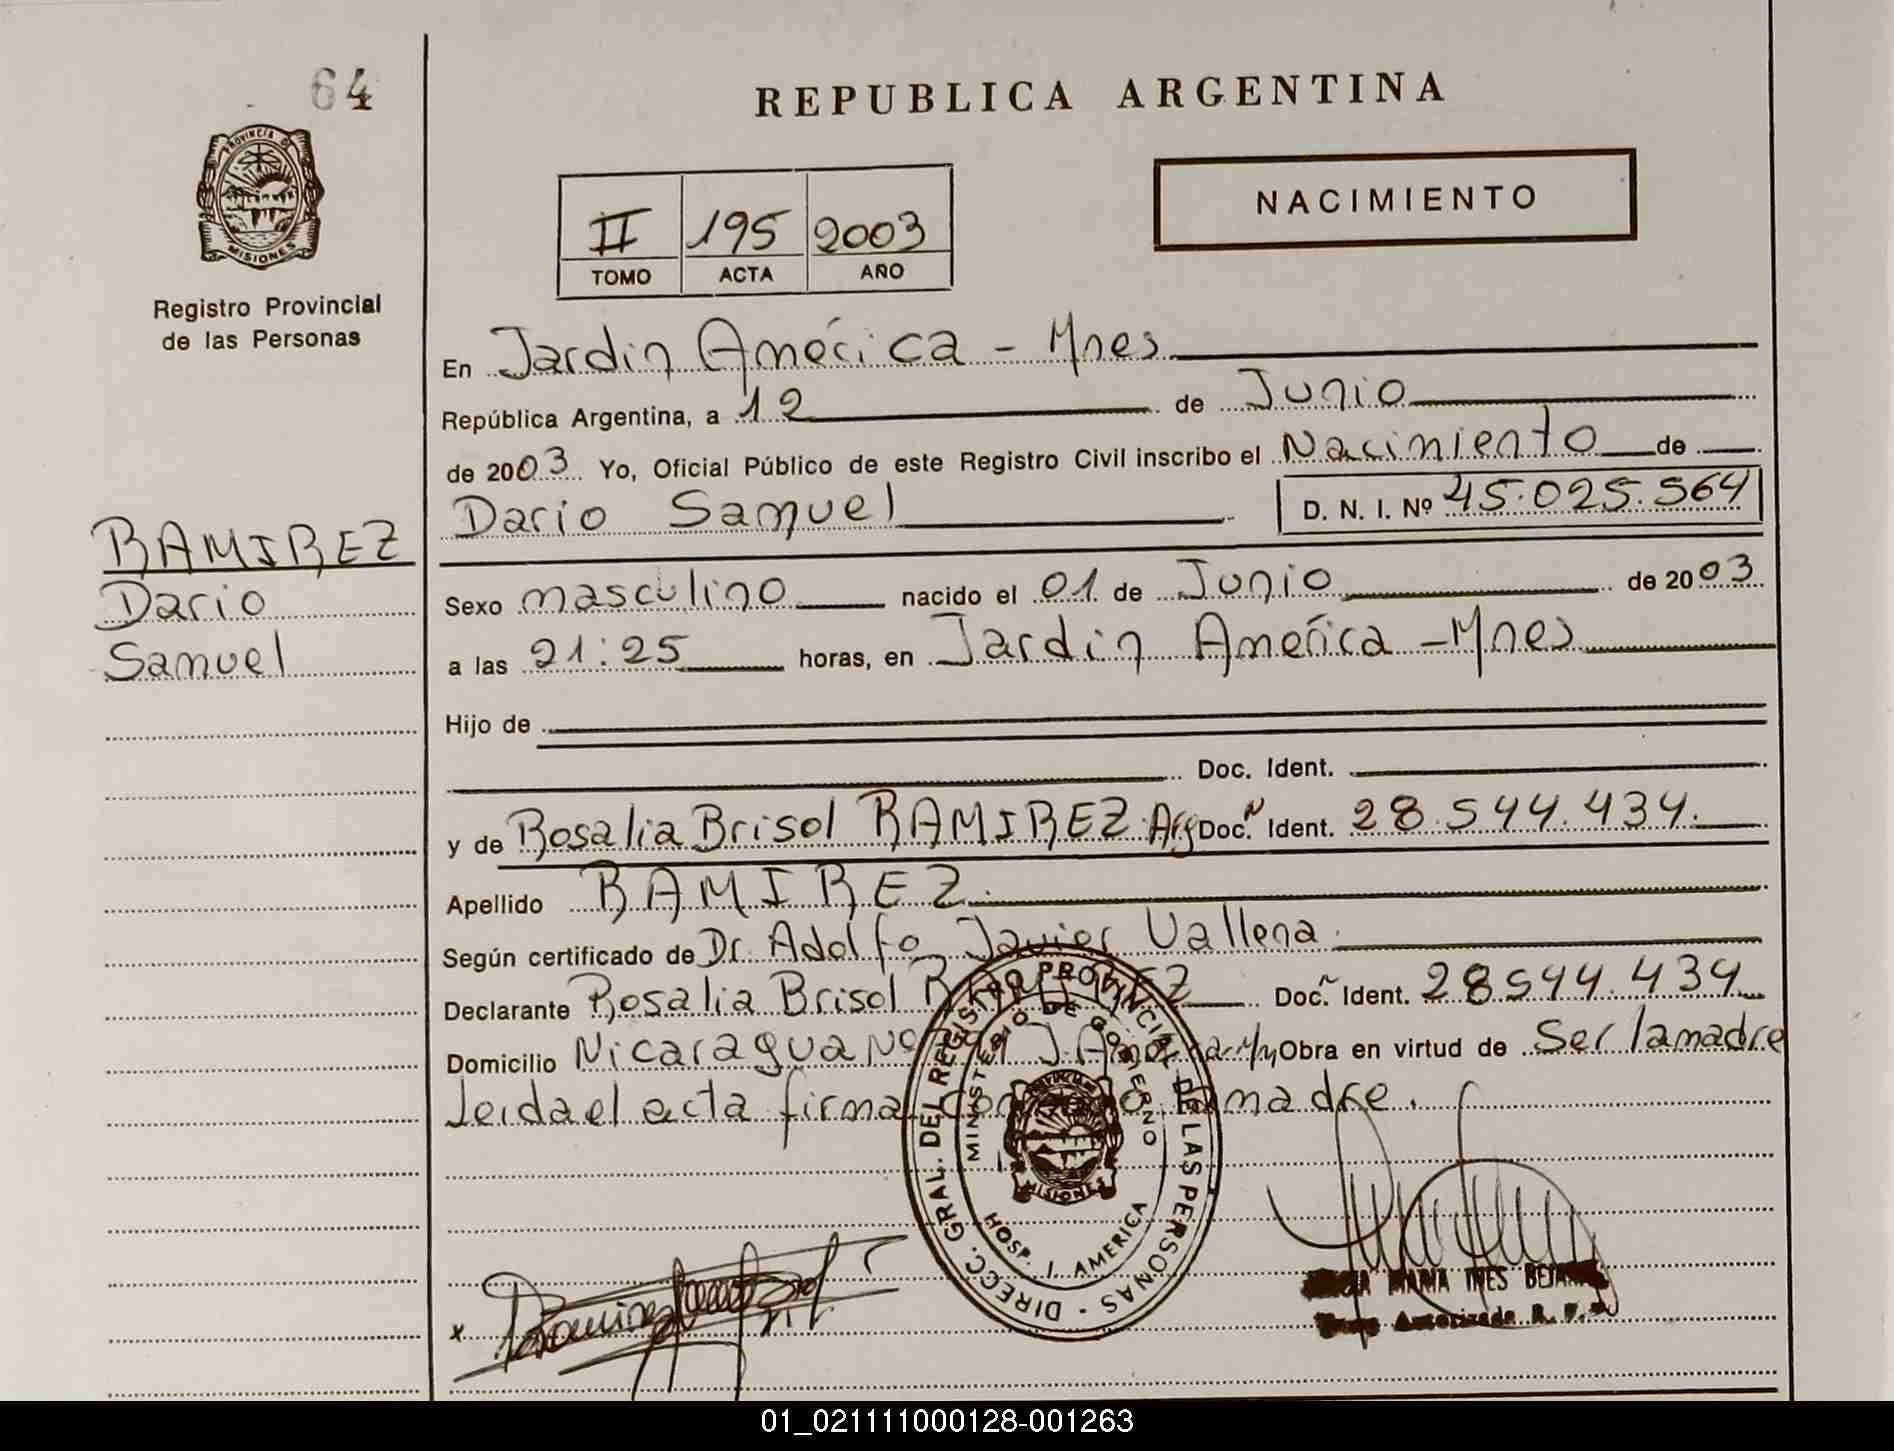 64
REPUBLICA ARGENTINA
PROVINCIA DE
MISIONES
Registro Provincial
de las Personas
II 195 2003
TOMO ACTA AÑO
NACIMIENTO
En Jardin América - Mnes
República Argentina, a 12 de Junio
de 2003 Yo, Oficial Público de este Registro Civil inscribo el Nacimiento de
Dario Samuel D. N. I. Nº 45.025.564
RAMIREZ
Dario
Samuel
Sexo masculino nacido el 01 de Junio de 2003
a las 21:25 horas, en Jardin América - Mnes
Hijo de
Doc. Ident.
y de Rosalia Brisol RAMIREZ Arg Doc. Ident. 28.544.434.
Apellido RAMIREZ.
Según certificado de Dr. Adolfo Javier Vallena.
Declarante Rosalia Brisol RAMIREZ Doc. Ident. 28544.434
Domicilio Nicaragua Nº J. América Obra en virtud de Ser la madre
Leida el acta firma la madre.
DIRECC. GRAL. DEL REGISTRO PROVINCIAL DE LAS PERSONAS -
MINISTERIO DE GOBIERNO
MISIONES
HOSP. J. AMERICA
x Ramirez
MARIA INES
Autorizada R. P.
01_021111000128-001263